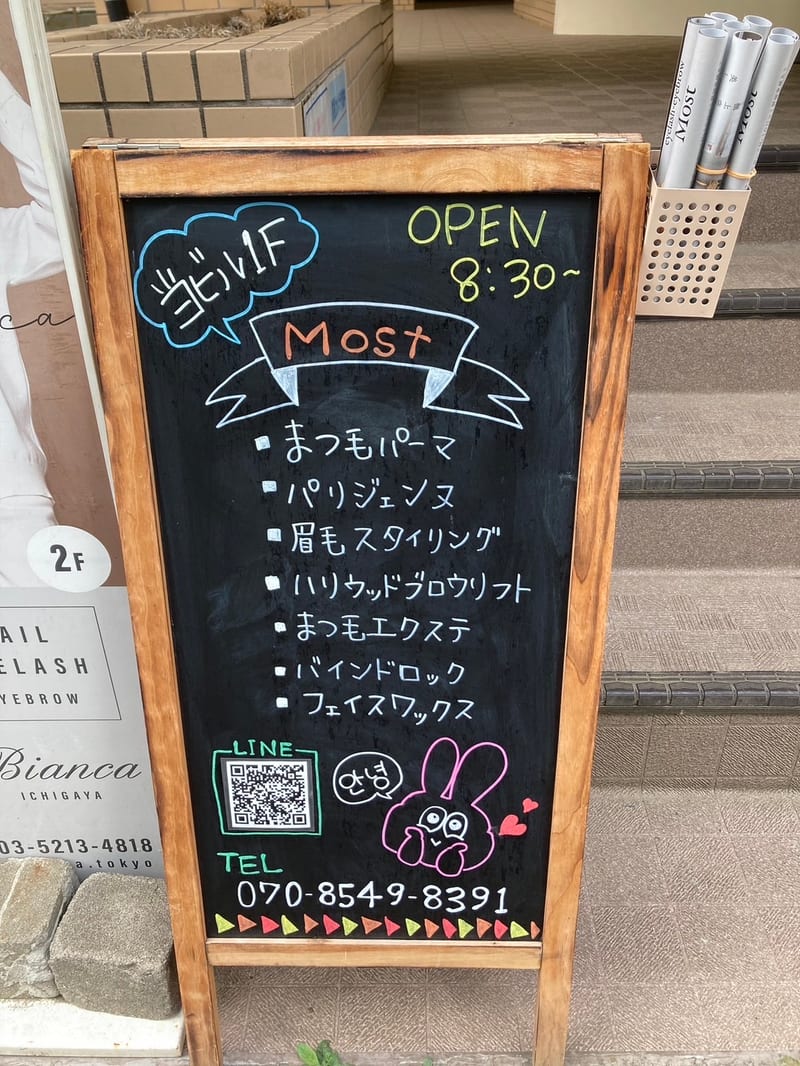 当ビル1F
OPEN
8:30~
Most
まつ毛パーマ
パリジェンヌ
眉毛スタイリング
ハリウッドブロウリフト
まつ毛エクステ
バインドロック
フェイスワックス
LINE
안녕
TEL
070-8549-8391
eyelash·eyebrow
Most
2F
AIL
ELASH
YEBROW
Bianca
ICHIGAYA
03-5213-4818
a.tokyo